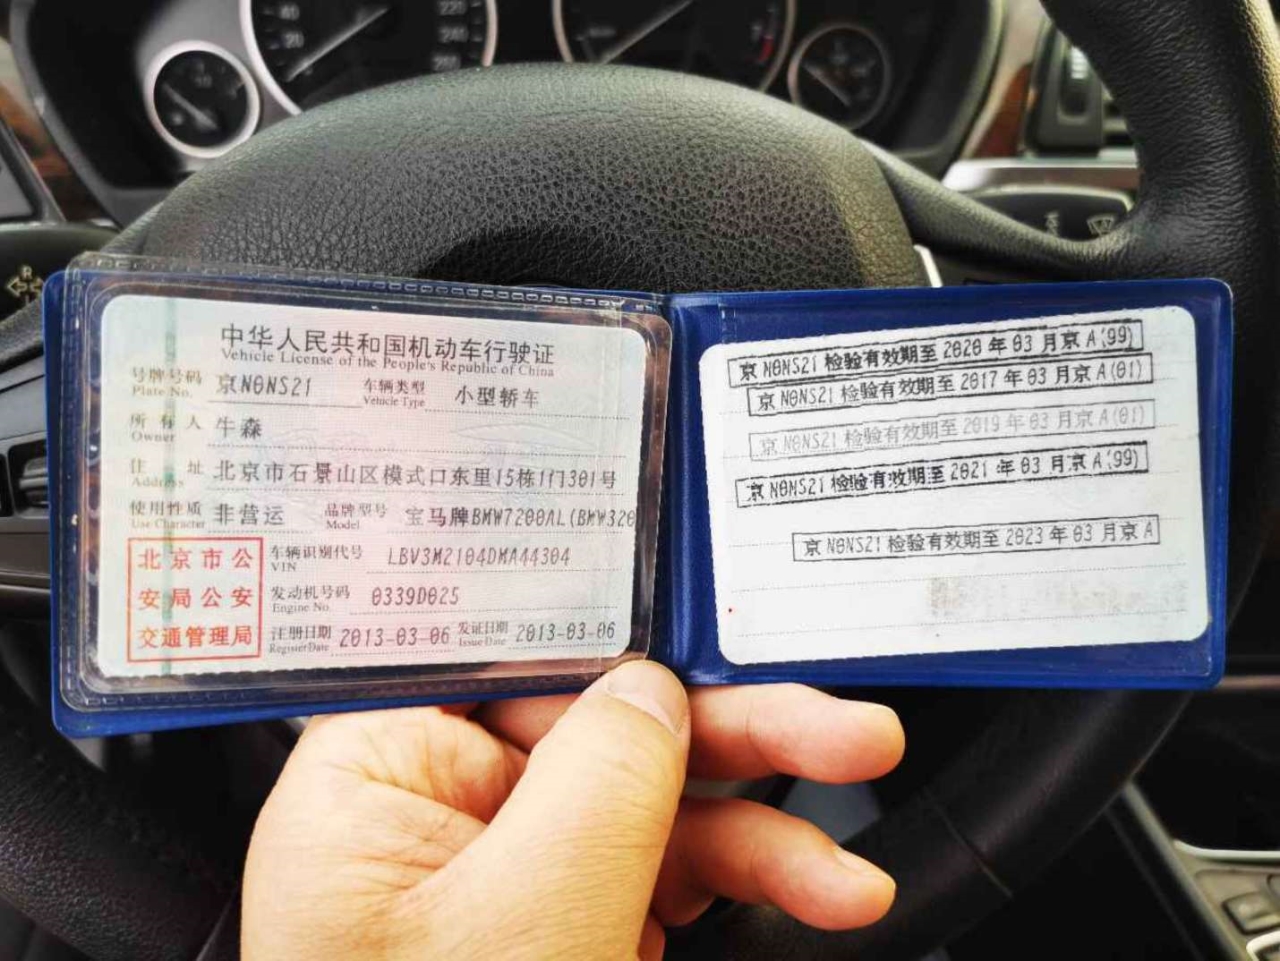 中华人民共和国机动车行驶证
Vehicle License of the People's Republic of China
号牌号码 京N0NS21 车辆类型 小型轿车
Plate No. Vehicle Type
所有人 牛森
Owner
住址 北京市石景山区模式口东里15栋1门301号
Address
使用性质 非营运 品牌型号 宝马牌BMW7200AL(BMW320
Use Character Model
北京市公
安局公安
交通管理局
车辆识别代号 LBV3M2104DMA44304
VIN
发动机号码 0339D025
Engine No.
注册日期 2013-03-06 发证日期 2013-03-06
Register Date Issue Date
京N0NS21 检验有效期至 2020 年 03 月京 A(99)
京N0NS21 检验有效期至 2017 年 03 月京 A(01)
京N0NS21 检验有效期至 2019 年 03 月京 A(01)
京N0NS21 检验有效期至 2021 年 03 月京 A(99)
京N0NS21 检验有效期至 2023 年 03 月京 A